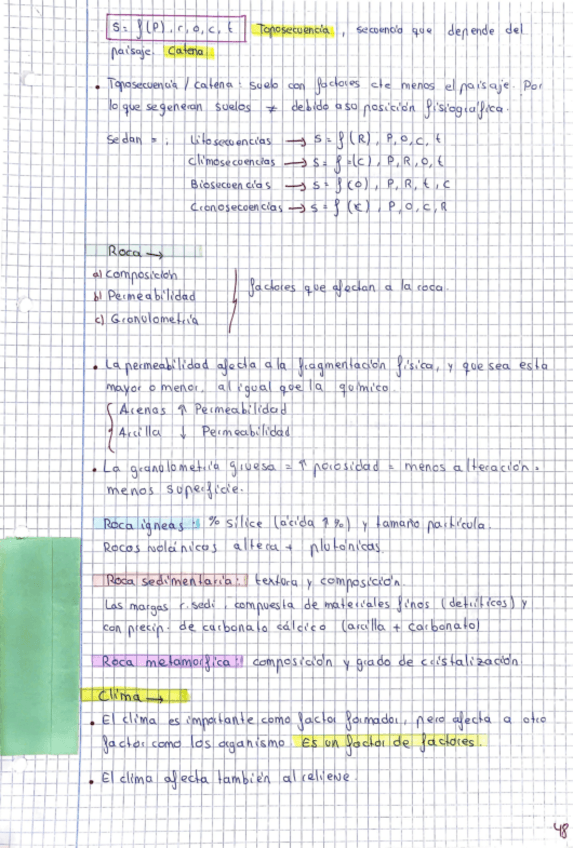 S = f (P), r, o, c, t Toposecuencia, secuencia que depende del
paisaje. Catena.
• Toposecuencia / catena: suelo con factores cte menos el paisaje. Por
lo que se generan suelos ≠ debido a so posición fisiográfica.
Se dan =, Litosecuencias → S = f (R), P, o, c, t
Climosecuencias → S = f =(c), P, R, o, t
Biosecuencias → S = f (o), P, R, t, c
Cronosecuencias → S = f (t), P, o, c, R
Roca →
a) Composición
b) Permeabilidad
c) Granulometría
factores que afectan a la roca.
• La permeabilidad afecta a la fragmentación física, y que sea esta
mayor o menor, al igual que la químico.
Arenas ↑ Permeabilidad
Arcilla ↓ Permeabilidad
• La granulometría gruesa = ↑ porosidad = menos alteración =
menos superficie.
Roca ígneas: % sílice (ácida ↑ %) y tamaño partícula.
Rocas volcánicas altera + plutónicas.
Roca sedimentaria: textura y composición.
Las margas r. sedi, compuesta de materiales finos (detríticos) y
con precip. de carbonato cálcico (arcilla + carbonato)
Roca metamorfica: composición y grado de cristalización
Clima →
• El clima es importante como factor formador, pero afecta a otro
factor como los organismo Es un factor de factores.
• El clima afecta también al relieve.
48